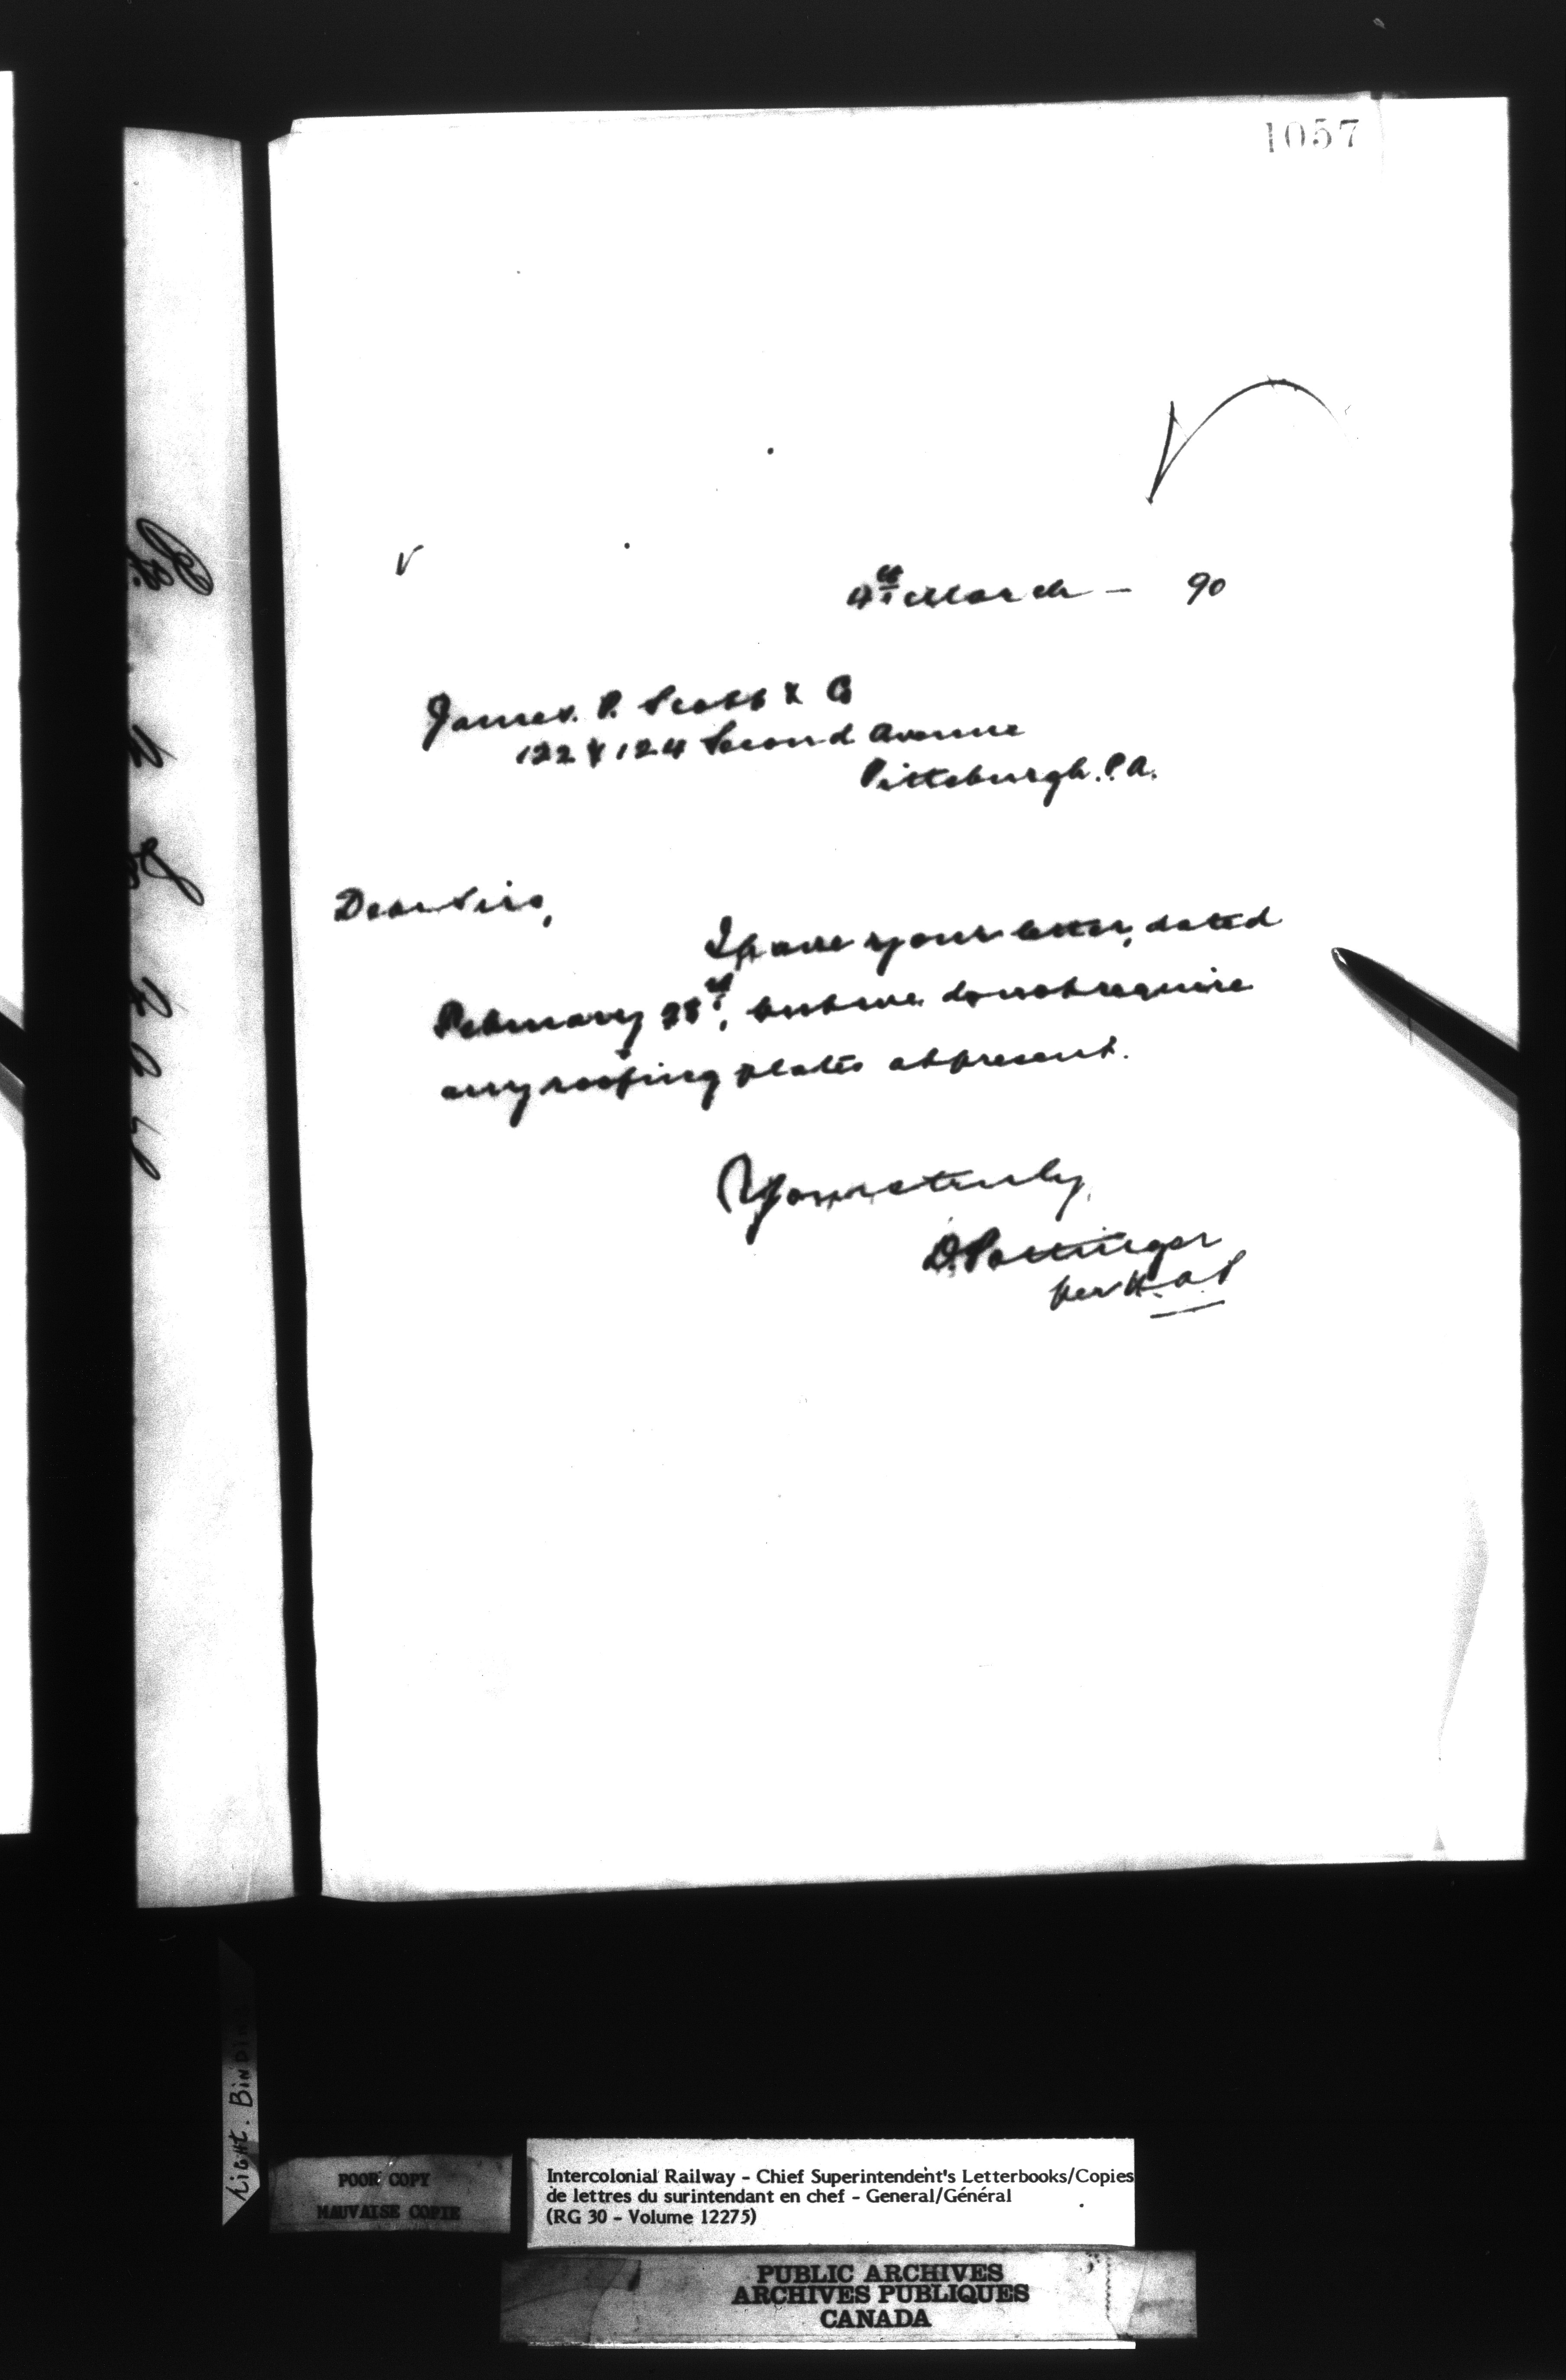 1057
4th March — 90
James. P. Scott & Co
122 & 124 Second Avenue
Pittsburgh. P.A.
Dear Sirs,
I have your letter, dated
February 28th, but we do not require
any roofing plates at present.
Yours truly,
D. Pottinger
per H. A. P
Light. BINDING
POOR COPY
MAUVAISE COPIE
Intercolonial Railway - Chief Superintendent's Letterbooks/Copies
de lettres du surintendant en chef - General/Général
(RG 30 - Volume 12275)
PUBLIC ARCHIVES
ARCHIVES PUBLIQUES
CANADA